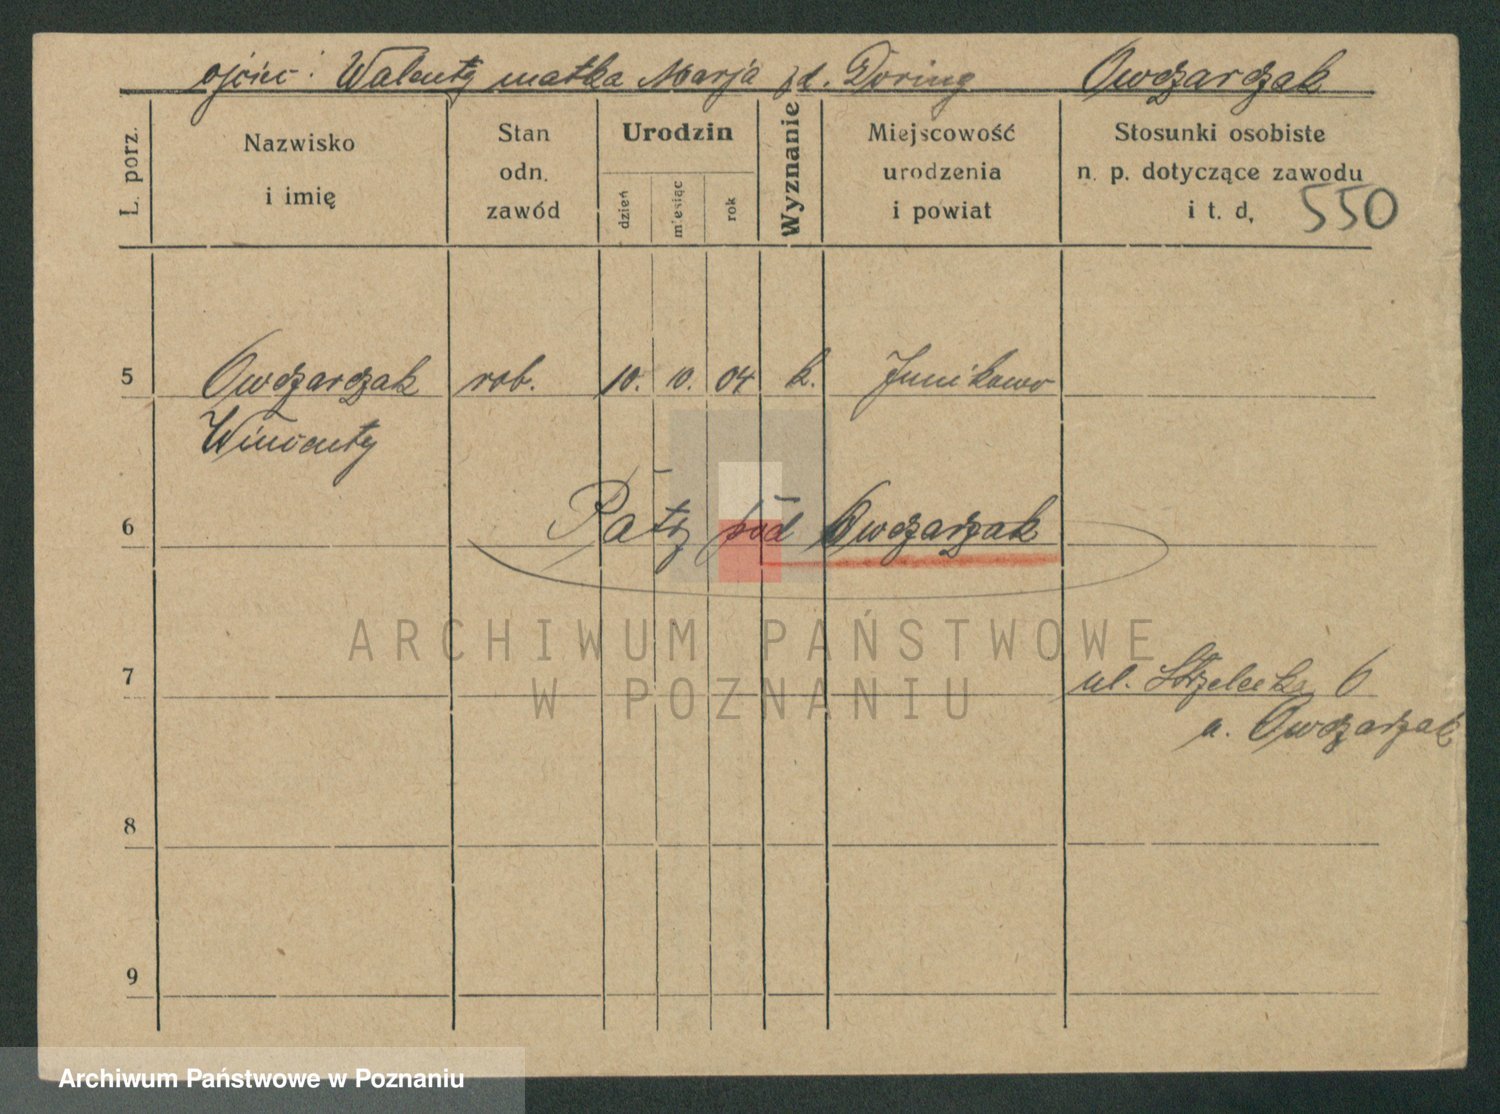 ojciec: Walenty matka Marja zd. Döring Owczarczak
L. porz.
Nazwisko
i imię
Stan
odn.
zawód
Urodzin
dzień
miesiąc
rok
Wyznanie
Miejscowość
urodzenia
i powiat
Stosunki osobiste
n. p. dotyczące zawodu
i t. d,
550
5 Owczarczak rob. 10. 10. 04 k. Junikowo
Wincenty
6 Patrz pod Owczarzak
7 ul. Strzelecka 6
a. Owczarzak
8
9
ARCHIWUM PAŃSTWOWE
W POZNANIU
Archiwum Państwowe w Poznaniu